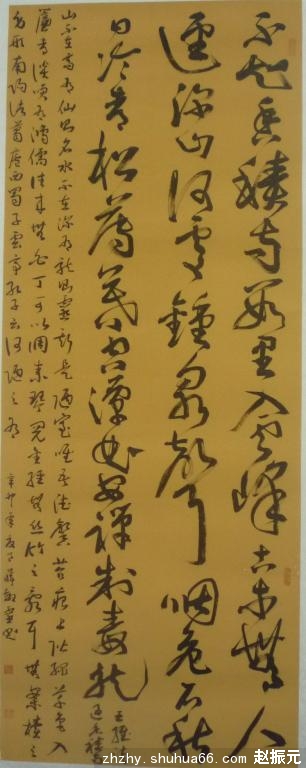 不知香積寺數里入雲峰古木無人
逕深山何處鐘泉聲咽危石
日冷青松薄暮空潭曲安禪制毒龍
王維詩
過香積寺
山不在高有仙則名水不在深有龍則靈斯是陋室唯吾德馨苔痕上階綠草色入
簾青談笑有鴻儒往來無白丁可以調素琴閱金經無絲竹之亂耳無案牘之
勞形南陽諸葛廬西蜀子雲亭孔子云何陋之有
辛卯年
zhzhy.shuhua66.com 赵振元